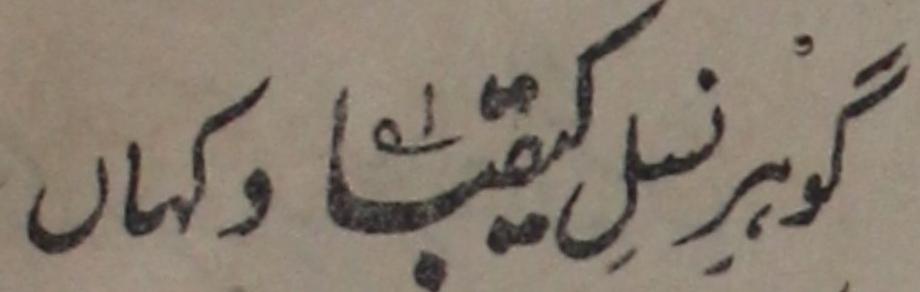 گُوہرِ نسلِ کیقبا و کہاں